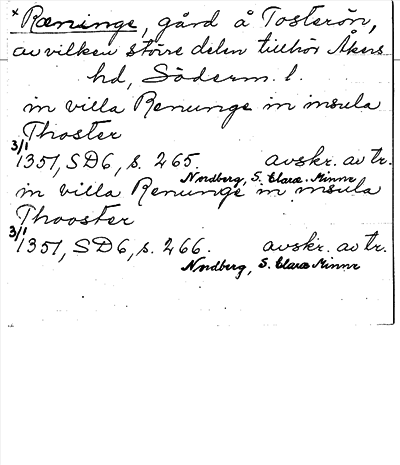 × Ræninge, gård å Tosterön,
av vilken större delen tillhör Åkers
hd, Söderm. l.
in villa Renunge in insula
Thoster
3/1 1351, SD6, s. 265. avskr. av tr.
Nordberg, S. Claræ Minne
in villa Renunge in insula
Thooster
3/1 1351, SD6, s. 266. avskr. av tr.
Nordberg, S. Claræ Minne